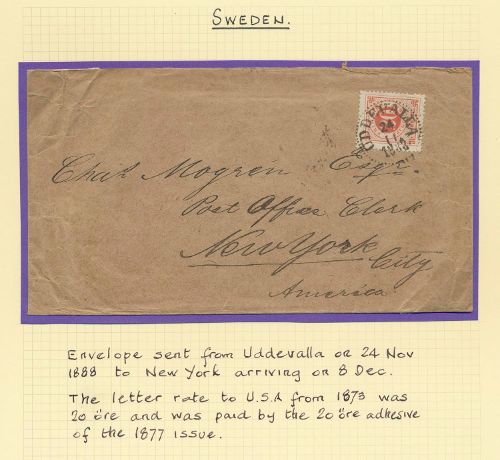 SWEDEN.
UDDEVALLA
Chas Mogren Esqr
Post Office Clerk
New York
City
America
Envelope sent from Uddevalla on 24 Nov
1888 to New York arriving on 8 Dec.
The letter rate to U.S.A from 1873 was
20 öre and was paid by the 20 öre adhesive
of the 1877 issue.